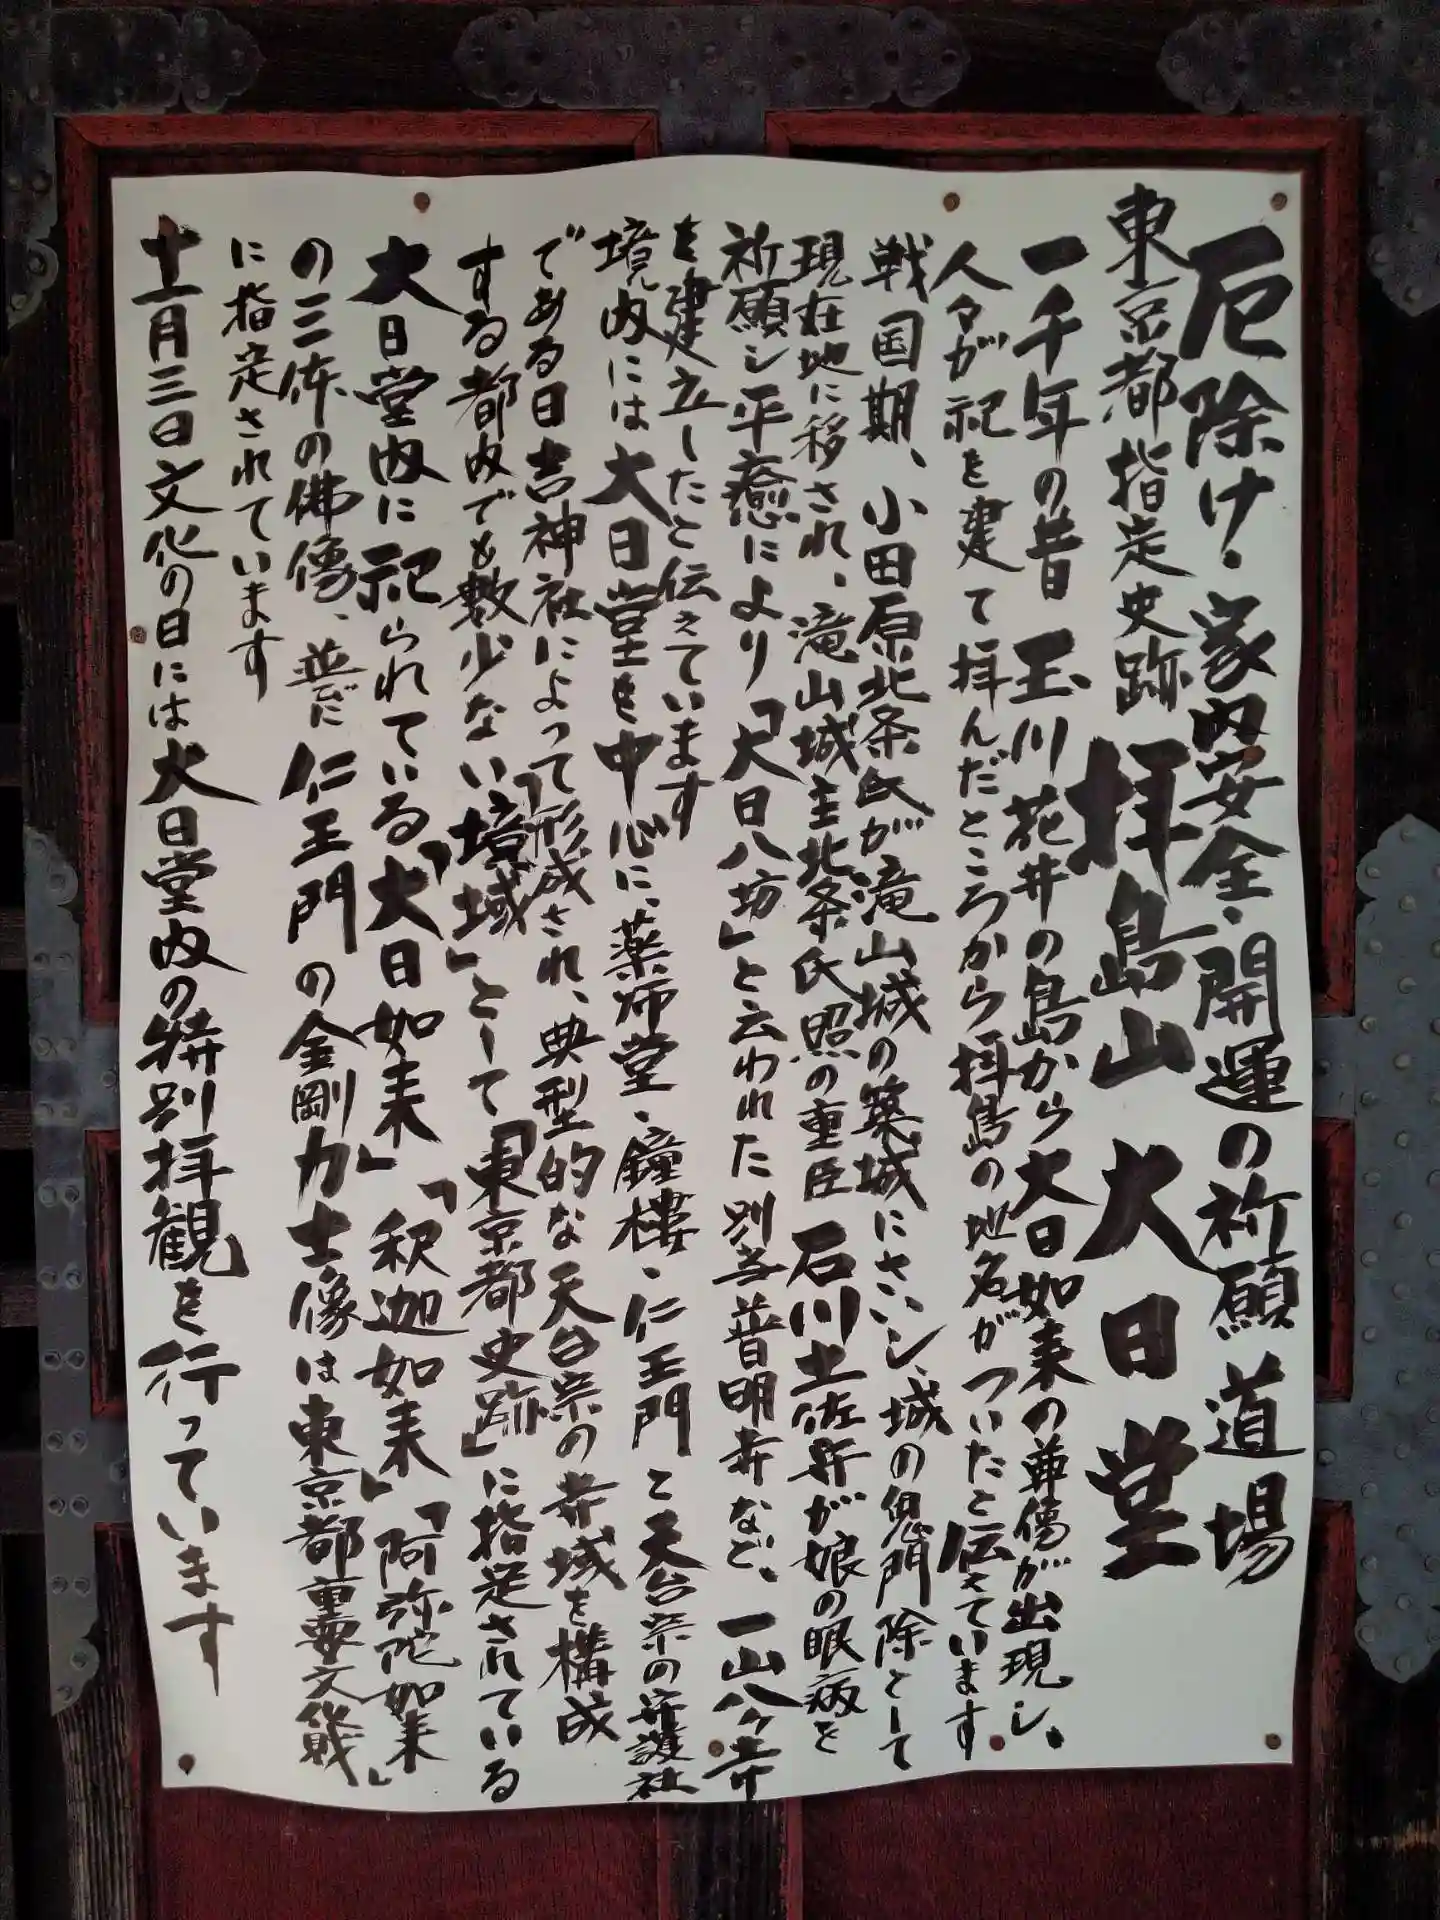 厄除け・家内安全・開運の祈願道場
東京都指定史跡 拝島山 大日堂
一千年の昔 玉川花井の島から大日如来の尊像が出現し、
人々が祀を建て拝んだところから拝島の地名がついたと伝えています
戦国期、小田原北条氏が滝山城の築城にさいし、城の鬼門除として
現在地に移され、滝山城主北条氏照の重臣 石川土佐守が娘の眼病を
祈願し平癒により「大日八坊」と云われた別当普明寺など、一山八ヶ寺
を建立したと伝えています
境内には大日堂を中心に、薬師堂・鐘楼・仁王門と天台宗の守護社
である日吉神社によって形成され、典型的な天台宗の寺域を構成
する都内でも数少ない「境域」として「東京都史跡」に指定されている
大日堂内に祀られている「大日如来」「釈迦如来」「阿弥陀如来」
の三体の佛像、並びに仁王門の金剛力士像は東京都重要文化財
に指定されています
十一月三日文化の日には大日堂内の特別拝観を行っています